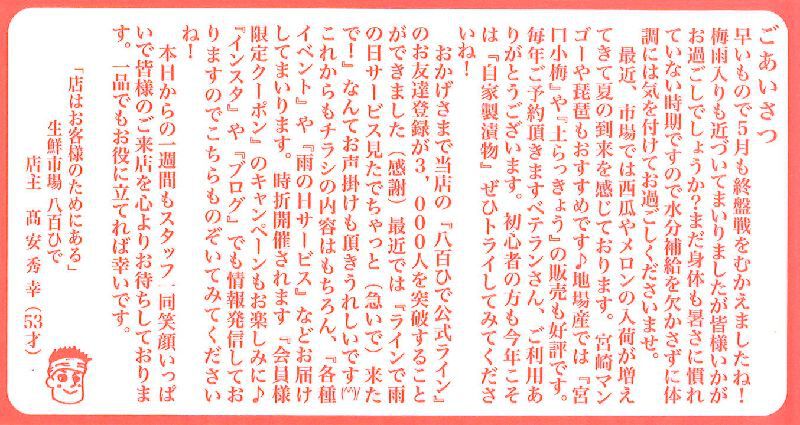 ごあいさつ
早いもので5月も終盤戦をむかえましたね！
梅雨入りも近づいてまいりましたが皆様いかが
お過ごしでしょうか？まだ身体も暑さに慣れ
ていない時期ですので水分補給を欠かさずに体
調には気を付けてお過ごしくださいませ。
最近、市場では西瓜やメロンの入荷が増え
てきて夏の到来を感じております。宮崎マン
ゴーや琵琶もおすすめです♪地場産では『宮
口小梅』や『上らっきょう』の販売も好評です。
毎年ご予約頂きますベテランさん、ご利用あ
りがとうございます。初心者の方も今年こそ
は『自家製漬物』ぜひトライしてみてくださ
いね！
おかげさまで当店の『八百ひで公式ライン』
のお友達登録が3，000人を突破すること
ができました（感謝）最近では『ラインで雨
の日サービス見たでちゃっと（急いで）来た
で！』なんてお声掛けも頂きうれしいです(^^)
これからもチラシの内容はもちろん、『各種
イベント』や『雨の日サービス』などお届け
してまいります。時折開催されます『会員様
限定クーポン』のキャンペーンもお楽しみに♪
『インスタ』や『ブログ』でも情報発信してお
りますのでこちらものぞいてみてください
ね！
本日からの一週間もスタッフ一同笑顔いっぱ
いで皆様のご来店を心よりお待ちしておりま
す。一品でもお役に立てれば幸いです。
「店はお客様のためにある」
生鮮市場 八百ひで
店主 髙安秀幸（53才）